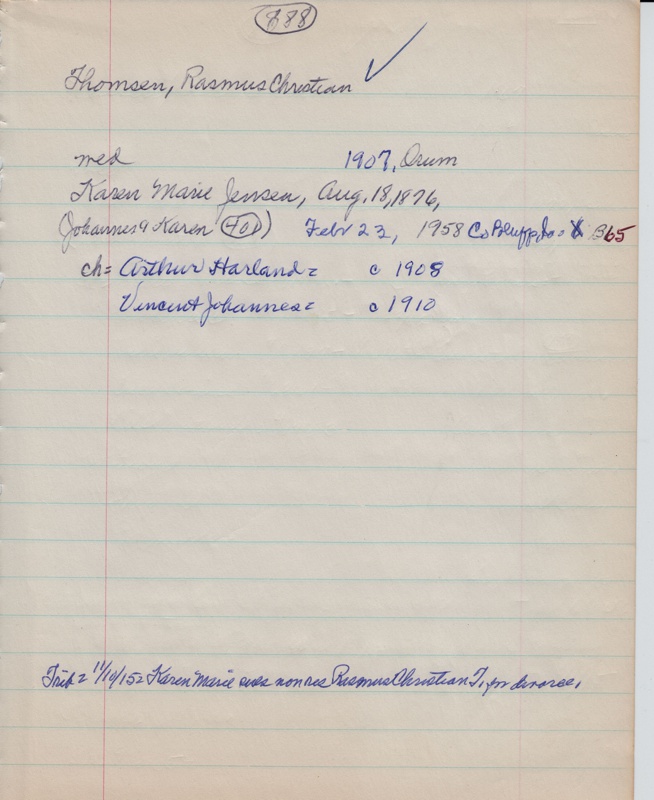 888
Thomsen, Rasmus Christian
med 1907, Orum
Karen Marie Jensen, Aug, 18, 1876,
Johannes & Karen 401) Febr 23, 1958 Co Bluffs Ia = B65
ch = Arthur Harland = c 1908
Vincent Johannes = c 1910
Trib = 11/10/15 = Karen Marie sues nonres Rasmus Christian T, for divorce,